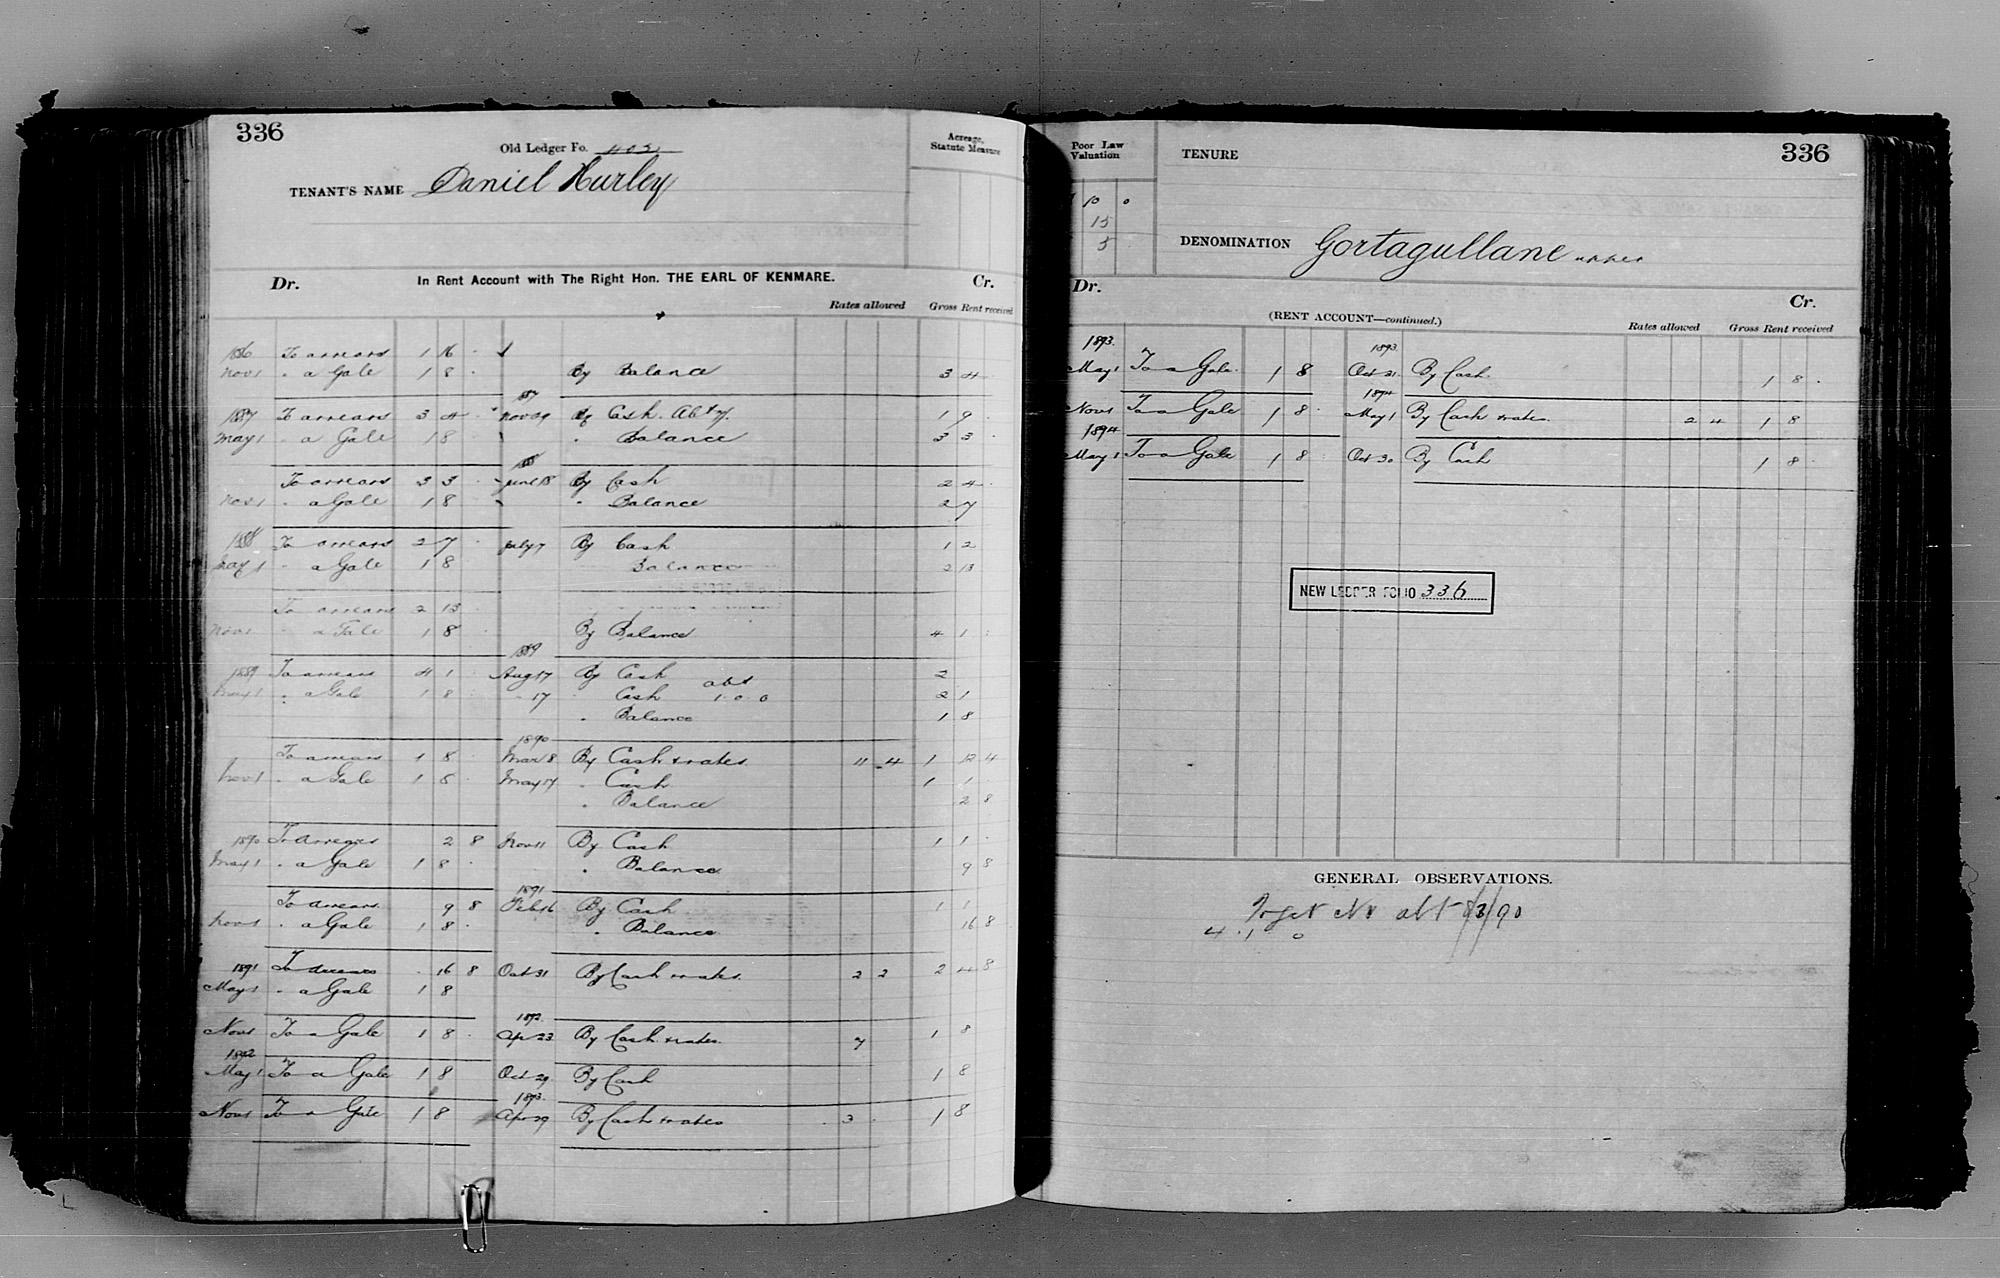 336
Old Ledger Fo. 403
Acreage, Statute Measure
TENANT'S NAME Daniel Hurley
Dr. In Rent Account with The Right Hon. THE EARL OF KENMARE. Cr.
Rates allowed Gross Rent received
1886 To arrears 1 16 .
Nov 1 " a Gale 1 8 . By Balance 3 4 .
1887
1887 To arrears 3 4 . Nov 29 By Cash. Abt 7/. 1 9 .
May 1 " a Gale 1 8 . " Balance 3 3 .
1888
To arrears 3 3 . June 18 By Cash 2 4 .
Nov 1 " a Gale 1 8 . " Balance 2 7
1888 To arrears 2 7 . July 7 By Cash 1 2
May 1 " a Gale 1 8 Balance 2 13
To arrears 2 13
Nov 1 " a Gale 1 8 By Balance 4 1 .
1889
1889 To arrears 4 1 Aug 17 By Cash abt 2
May 1 " a Gale 1 8 " 17 " Cash 1.0.0 2 1
" Balance 1 8
1890
To arrears 1 8 Mar 8 By Cash & rates 11 4 1 12 4
Nov 1 " a Gale 1 8 May 17 " Cash 1 1
" Balance 2 8
1890 To Arrears 2 8 Nov 11 By Cash 1 1 .
May 1 " a Gale 1 8 . " Balance 9 8
1891
To arrears 9 8 Feb 16 By Cash 1 1
Nov 1 " a Gale 1 8 . " Balance 16 8
1891 To arrears . 16 8 Oct 31 By Cash & rates. 2 2 2 4 8
May 1 " a Gale 1 8
1892.
Nov 1 To a Gale 1 8 . Apr 23 By Cash & rates. 7 1 8
1892
May 1 To a Gale 1 8 Oct 29 By Cash 1 8
1893.
Nov 1 To a Gale 1 8 Apr 29 By Cash & rates . 3 . 1 8
Poor Law Valuation
TENURE
336
10 0
15
5
DENOMINATION Gortagullane upper
Dr. Cr.
(RENT ACCOUNT—continued.)
Rates allowed Gross Rent received
1893. 1893.
May 1 To a Gale. 1 8 Oct 31 By Cash. 1 8 .
1894
Nov 1 To a Gale 1 8 . May 1 By Cash & rates. 2 4 1 8
1894
May 1 To a Gale 1 8 Oct 30 By Cash 1 8 .
NEW LEDGER FOLIO 336
GENERAL OBSERVATIONS.
abt 8/3/90
4 . 1 0